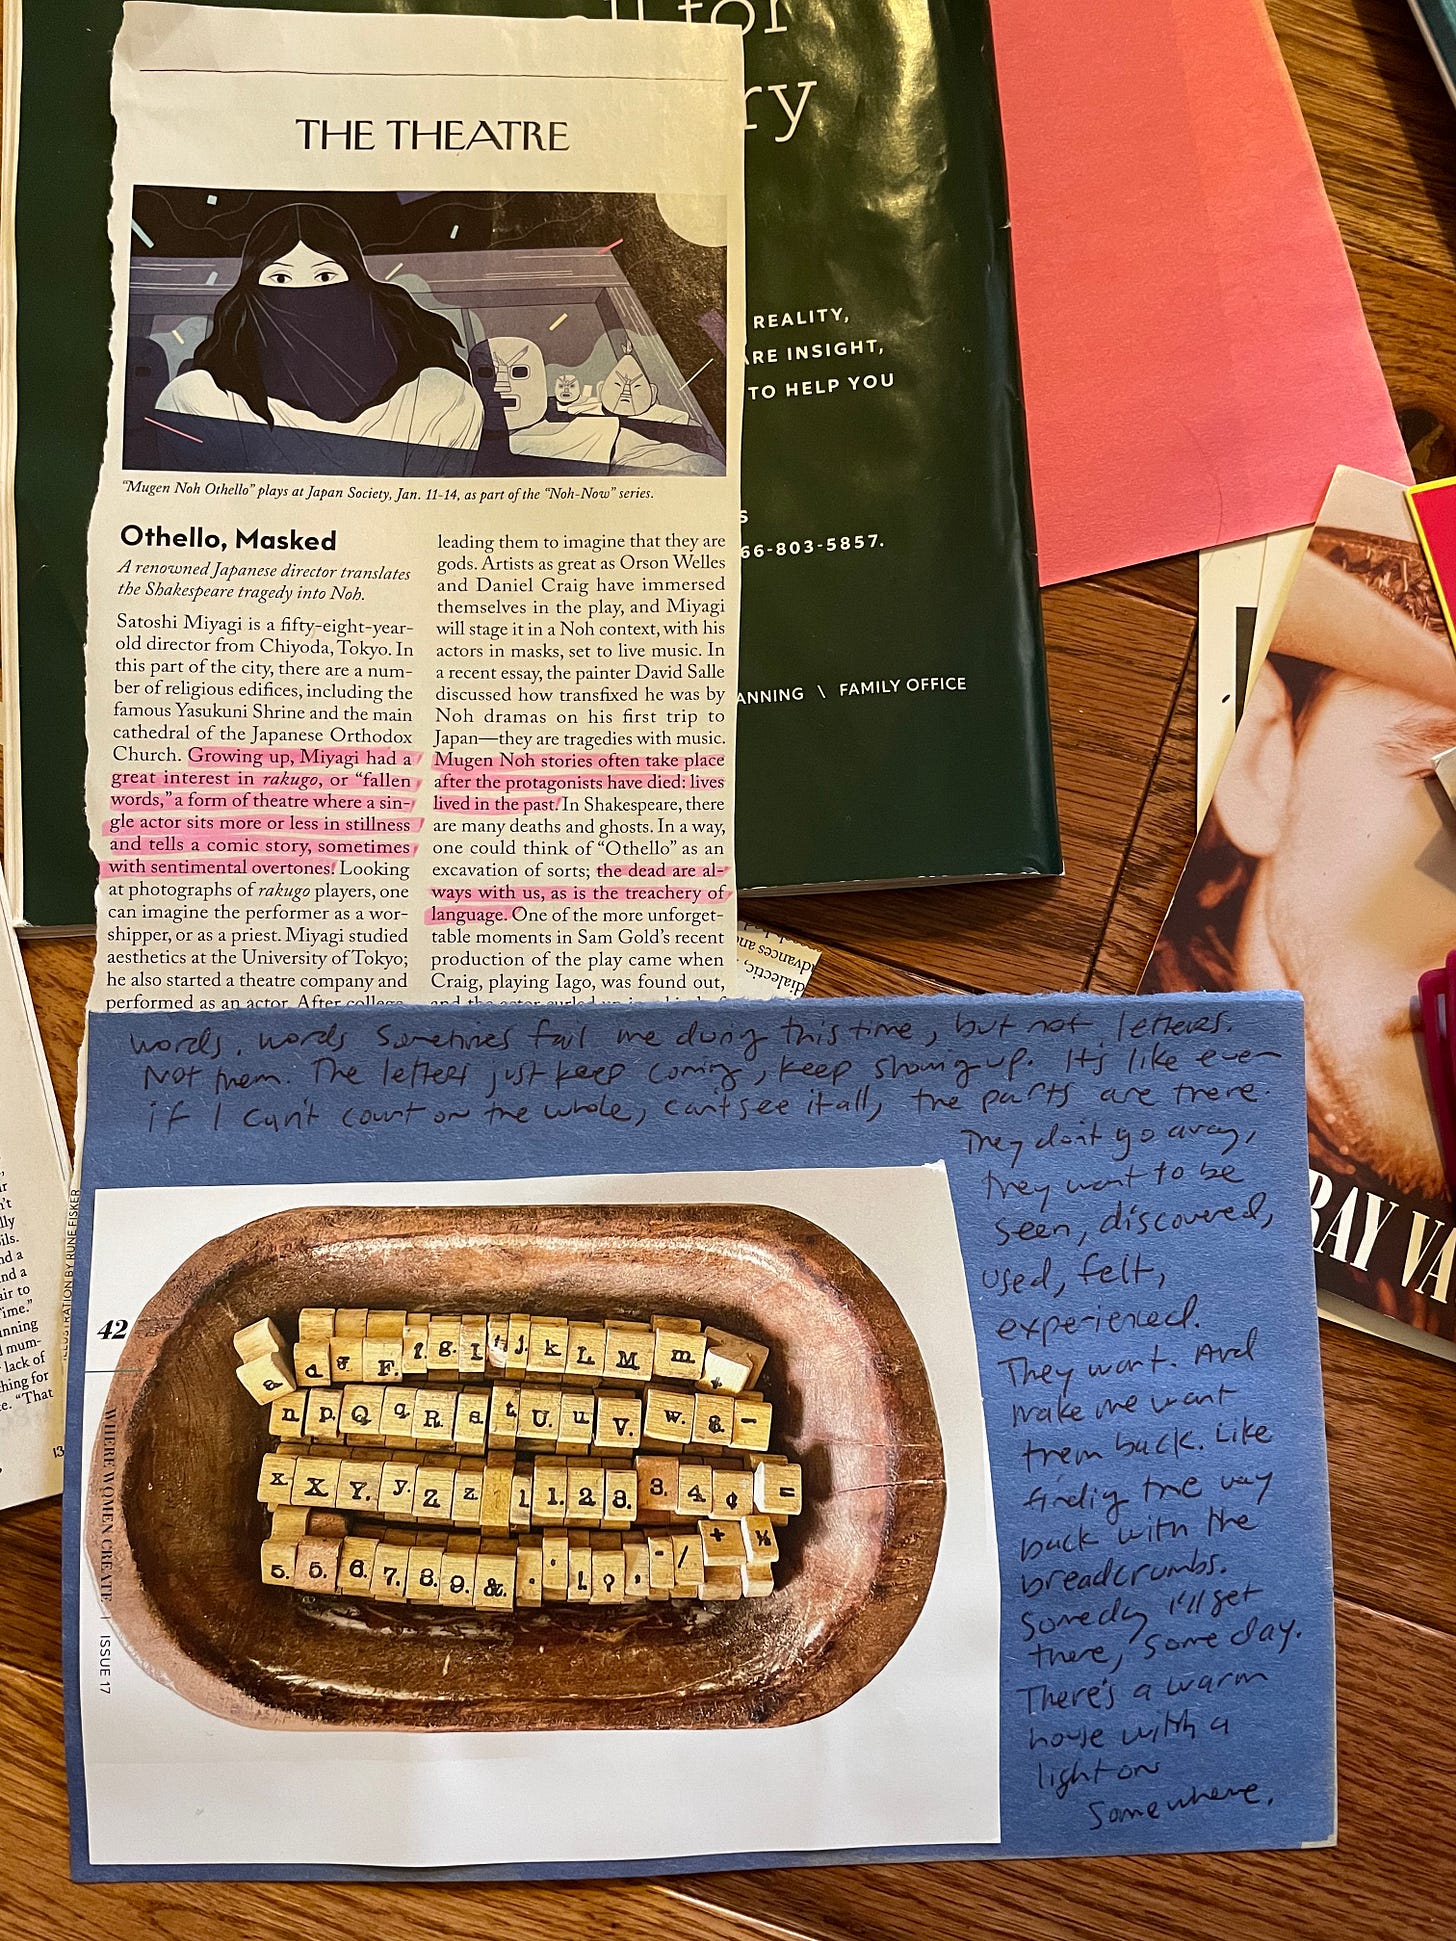 ll for
ry
REALITY,
ARE INSIGHT,
TO HELP YOU
S
66-803-5857.
ANNING \ FAMILY OFFICE
THE THEATRE
"Mugen Noh Othello" plays at Japan Society, Jan. 11-14, as part of the "Noh-Now" series.
Othello, Masked
A renowned Japanese director translates
the Shakespeare tragedy into Noh.
Satoshi Miyagi is a fifty-eight-year-
old director from Chiyoda, Tokyo. In
this part of the city, there are a num-
ber of religious edifices, including the
famous Yasukuni Shrine and the main
cathedral of the Japanese Orthodox
Church. Growing up, Miyagi had a
great interest in rakugo, or "fallen
words," a form of theatre where a sin-
gle actor sits more or less in stillness
and tells a comic story, sometimes
with sentimental overtones. Looking
at photographs of rakugo players, one
can imagine the performer as a wor-
shipper, or as a priest. Miyagi studied
aesthetics at the University of Tokyo;
he also started a theatre company and
performed as an actor. After college,
leading them to imagine that they are
gods. Artists as great as Orson Welles
and Daniel Craig have immersed
themselves in the play, and Miyagi
will stage it in a Noh context, with his
actors in masks, set to live music. In
a recent essay, the painter David Salle
discussed how transfixed he was by
Noh dramas on his first trip to
Japan—they are tragedies with music.
Mugen Noh stories often take place
after the protagonists have died: lives
lived in the past. In Shakespeare, there
are many deaths and ghosts. In a way,
one could think of "Othello" as an
excavation of sorts; the dead are al-
ways with us, as is the treachery of
language. One of the more unforget-
table moments in Sam Gold's recent
production of the play came when
Craig, playing Iago, was found out,
dialectic,
advances and
ILLUSTRATION BY RUNE FISKER
words. words sometimes fail me during this time, but not letters.
Not them. The letters just keep coming, keep showing up. It's like even
if I can't count on the whole, can't see it all, the parts are there.
They don't go away,
they want to be
seen, discovered,
used, felt,
experienced.
They want. And
make me want
them back. Like
finding the way
back with the
breadcrumbs.
Someday I'll get
there, some day.
There's a warm
house with a
light on
Somewhere.
42
WHERE WOMEN CREATE | ISSUE 17
a d g F. f. g. I j. k L M m
n p. Q q R. s t U. u V. w. 8. -
x X Y. y. Z z 1 1. 2 3. 3. 4 ¢ =
5. 5. 6. 7. 8. 9. &. . ! ? , - / + ½
RAY VA